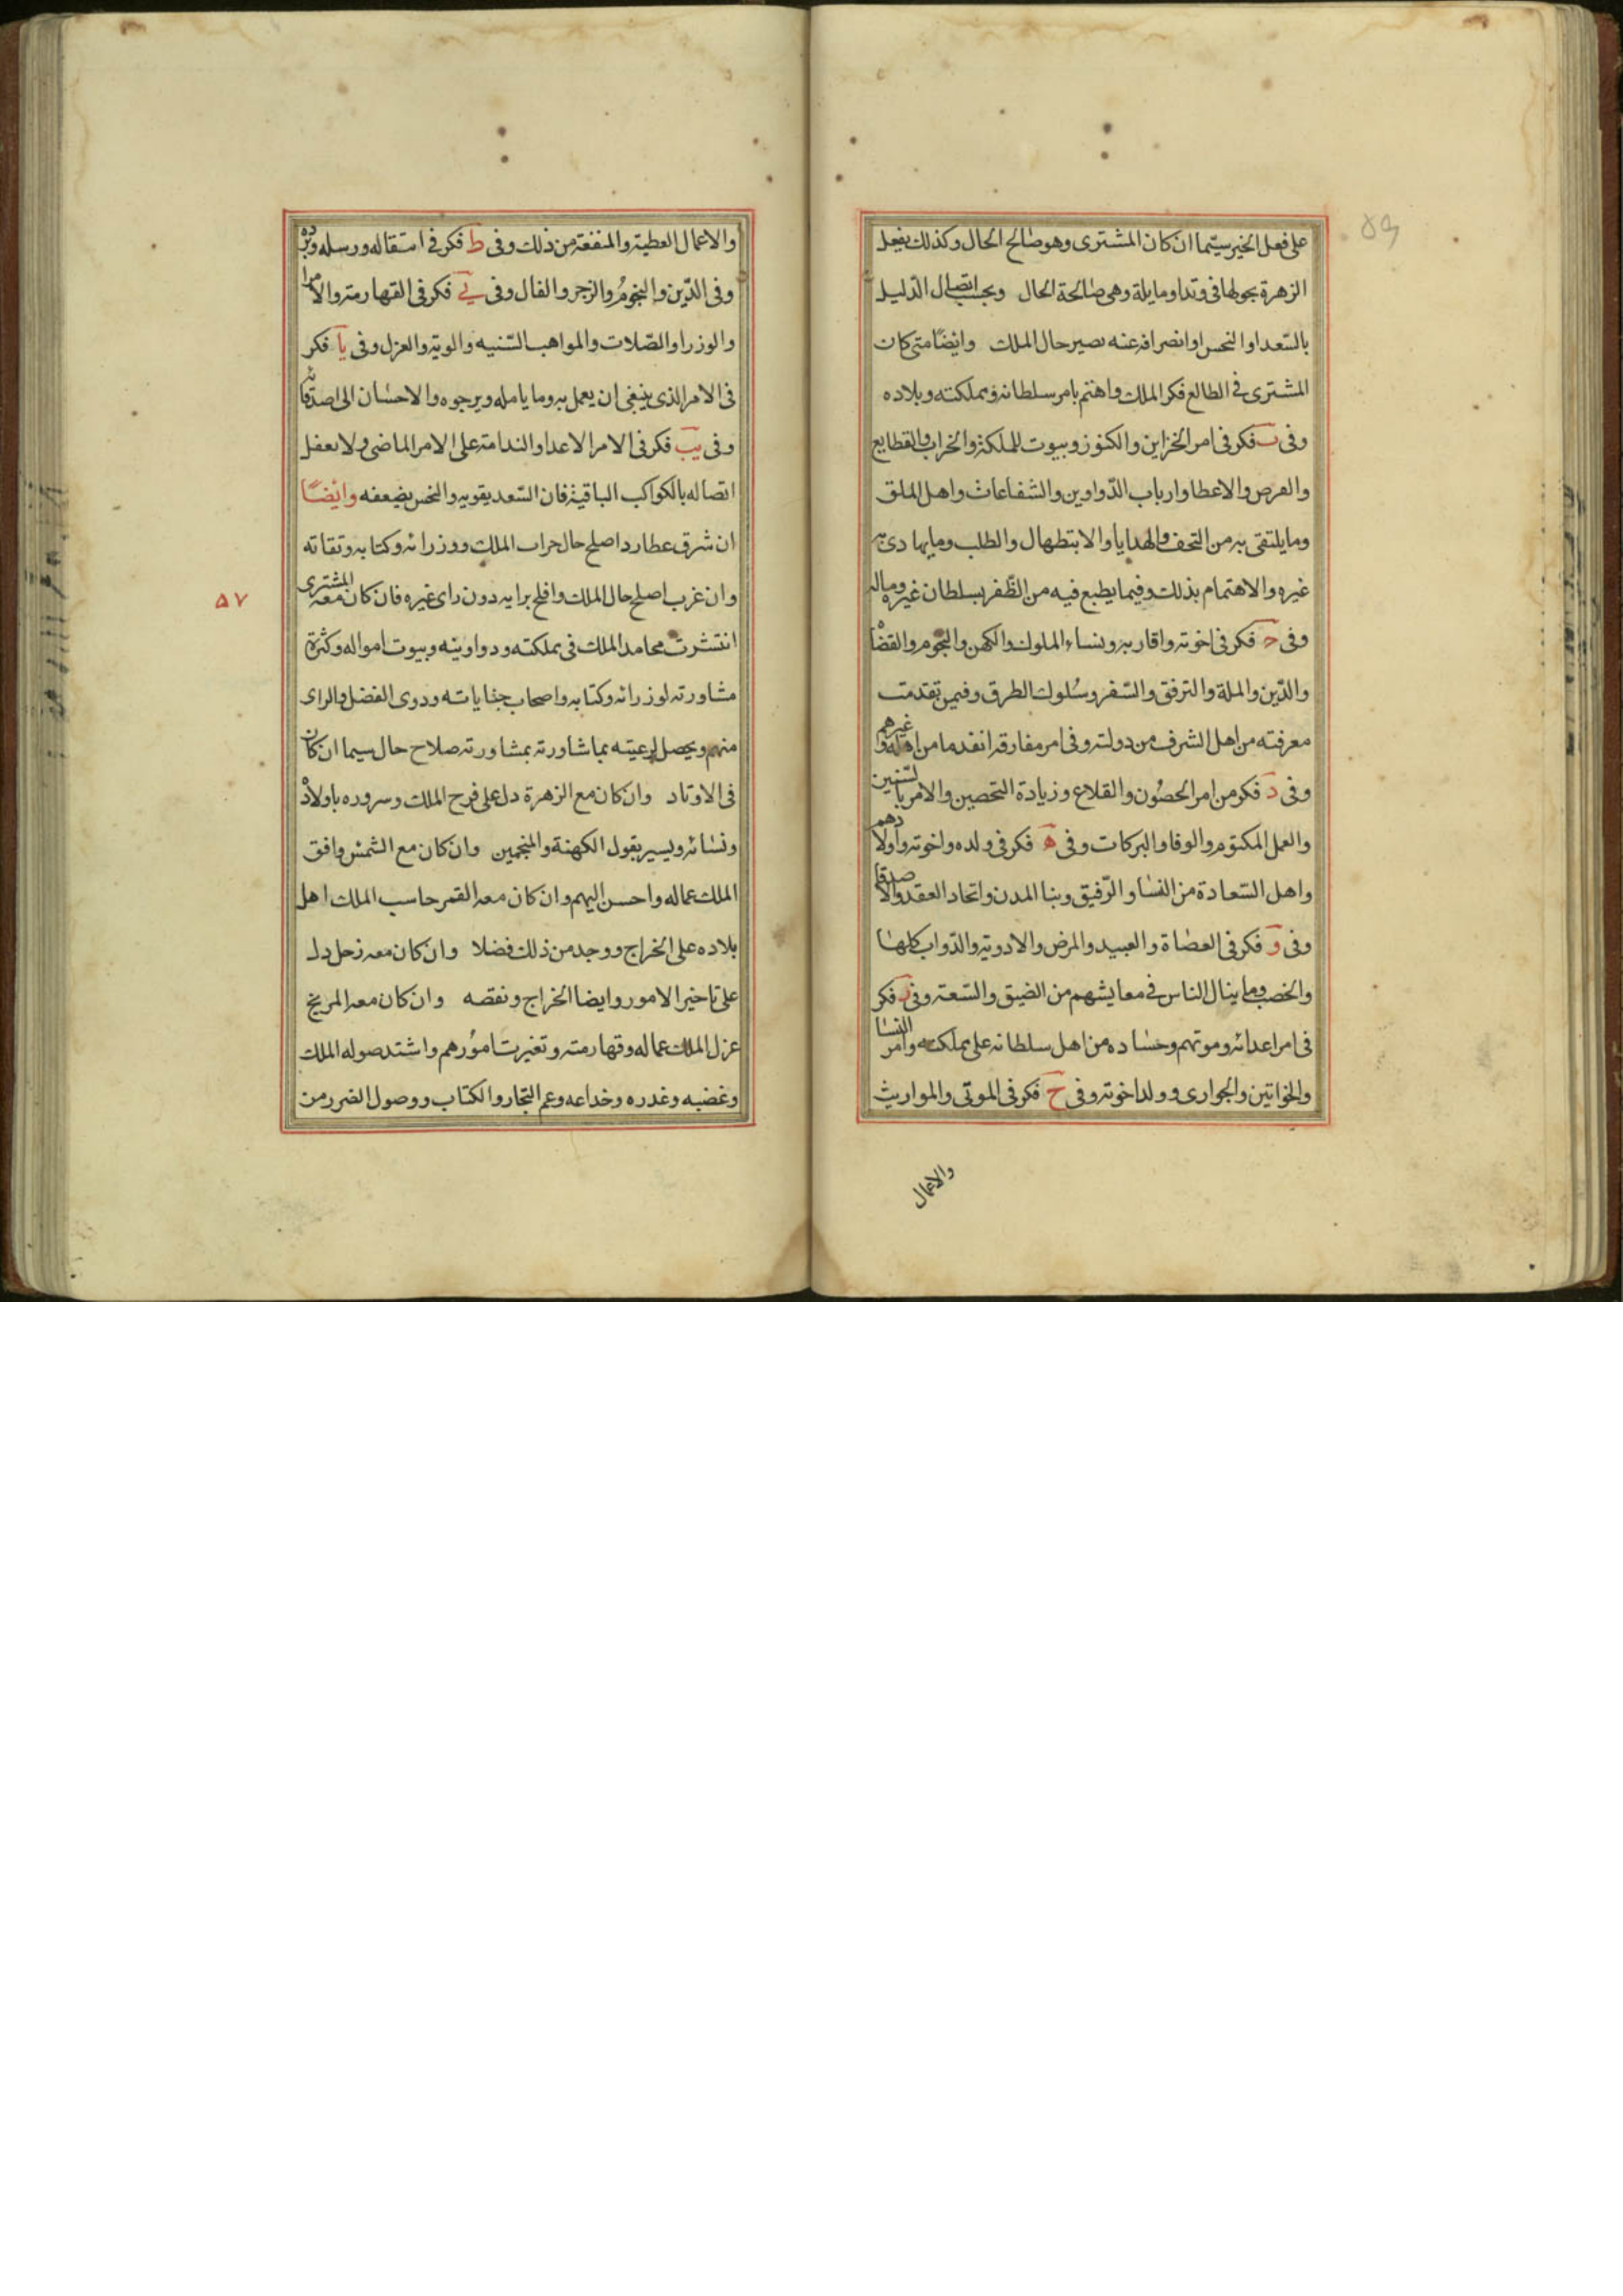 على فعل الخير سيّما ان كان المشترى وهو صالح الحال وكذلك يفعل
الزهرة بحولها فى وتد او مايلة وهى صالحة الحال وبحسب اتصال الدّليل
بالسّعد او النحس او انصرافه عنه يصير حال الملك وايضًا متى كان
المشترى فى الطالع فكر الملك واهتم بامر سلطانه ومملكته وبلاده
وفى ب فكر فى امر الخزاين والكنوز وبيوت المملكة والخراب والقطايع
والعرض والاعطا وارباب الدّواوين والشفاعات واهل الملق
وما يلتقى به من التحف والهدايا والابتطهال والطلب وما يهادى به
غيره والاهتمام بذلك وفيما يطبع فيه من الظّفر بسلطان غيره وماله
وفى ح فكر فى اخوته واقاربه ونساء الملوك والكهن والنجوم والقضاة
والدّين والملة والترفق والسّفر وسُلوك الطرق وفيمن تقدمت
معرفته من اهل الشرف من دولته وفى امر مفارقه انقدما من اهله او غيرهم
وفى د فكر من امر الحصُون والقلاع وزيادة التحصين والامر بالسّنين
والعمل المكتوم والوفا والبركات وفى ه فكر فى ولده واخوته واولادهم
واهل السّعادة من النسَا والرّفيق وبنا المدن واتحاد العقد والاصدقا
وفى و فكر فى العصَاة والعبيد والمرض والادوية والدّواب كلها
والخصب وما ينال الناس فى معايشهم من الضيق والسّعة وفى ز فكر
فى امر اعدائه وموتهم وحسَاده من اهل سلطانه على مملكته وامر النسَا
والخواتين والجوارى وولد اخوته وفى ح فكر فى الموتى والمواريث
والاعمال
والاعمال العطية والمنفعة من ذلك وفى ط فكر فى استقاله ورسله وبرده
وفى الدّين والنجومُ والزجر والفال وفى ى فكر فى القهارمة والامرا
والوزرا والصّلات والمواهب السّنيه والوية والعزل وفى يا فكر
فى الامر الذى ينبغى ان يعمل به وما يامله ويرجوه والاحسَان الى اصدقائه
وفى يب فكر فى الامر الاعدا والندامة على الامر الماضى ولا يعفل
اتصاله بالكواكب الباقية فان السّعد يقويه والنحس يضعفه وايضًا
ان شرق عطارد اصلح حال حراب الملك ووزرائه وكتابه وثقاته
وان غرب اصلح حال الملك وافلح برايه دون راى غيره فان كان معه المشترى
انتشرت محامد الملك فى مملكته ودواوينه وبيوت امواله وكثرة
مشاورته لوزرائه وكتابه واصحاب جناياته وذوى الفضل والراى
منهم ويحصل لرعيته بما شاورته بمشاورته صلاح حال سيما ان كان
فى الاوتاد وان كان مع الزهرة دل على فرح الملك وسروره باولاده
ونسائه ويسير بقول الكهنة والمنجمين وان كان مع الشمس وافق
الملك عماله واحسن اليهم وان كان معه القمر حاسب الملك اهل
بلاده على الخراج ووجد من ذلك فضلا وان كان معه زحل دل
على تاخير الامور وايضا الخراج ونقصه وان كان معه المريخ
عزل الملك عماله وقهارمته وتغيرت امُورهم واشتد صوله الملك
وغضبه وغدره وخداعه وعم التجار والكتاب ووصول الضرر من
٥٧